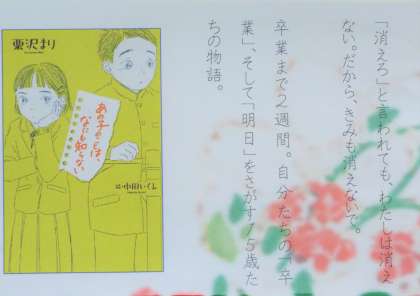 「消えろ」と言われても、わたしは消え
ない。だから、きみも消えないで。
卒業まで2週間。自分たちの「卒
業」、そして「明日」をさがす15歳た
ちの物語。
栗沢まり
あの子のことは、
なにも知らない
絵・中田いくみ